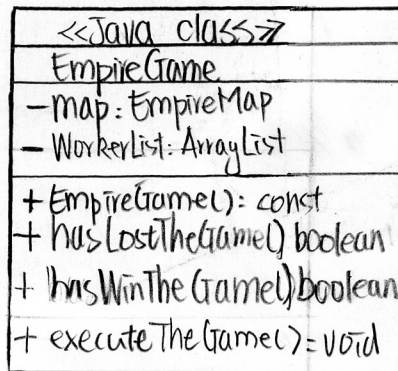 <<Java class>>
EmpireGame
- map: EmpireMap
- WorkerList: ArrayList
+ EmpireGame(): const
+ hasLostTheGame() boolean
+ hasWinThe Game() boolean
+ execute The Game(): void